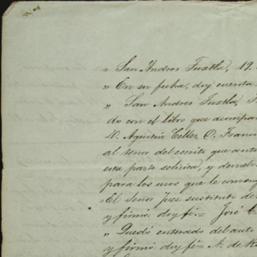 " San Andres Tuxtla, 19
" En su fecha, doy cuenta
" San Andres Tuxtla,
do con el libro que acompaña
N. Agustin Teller O. Franc
al tenor del escrito que
esta parte solicita, y
para los usos que le convengan
El Señor juez sustituto de
y firmó doy fé= José C
" Quedó enterado del auto
y firmó doy fé= A. de